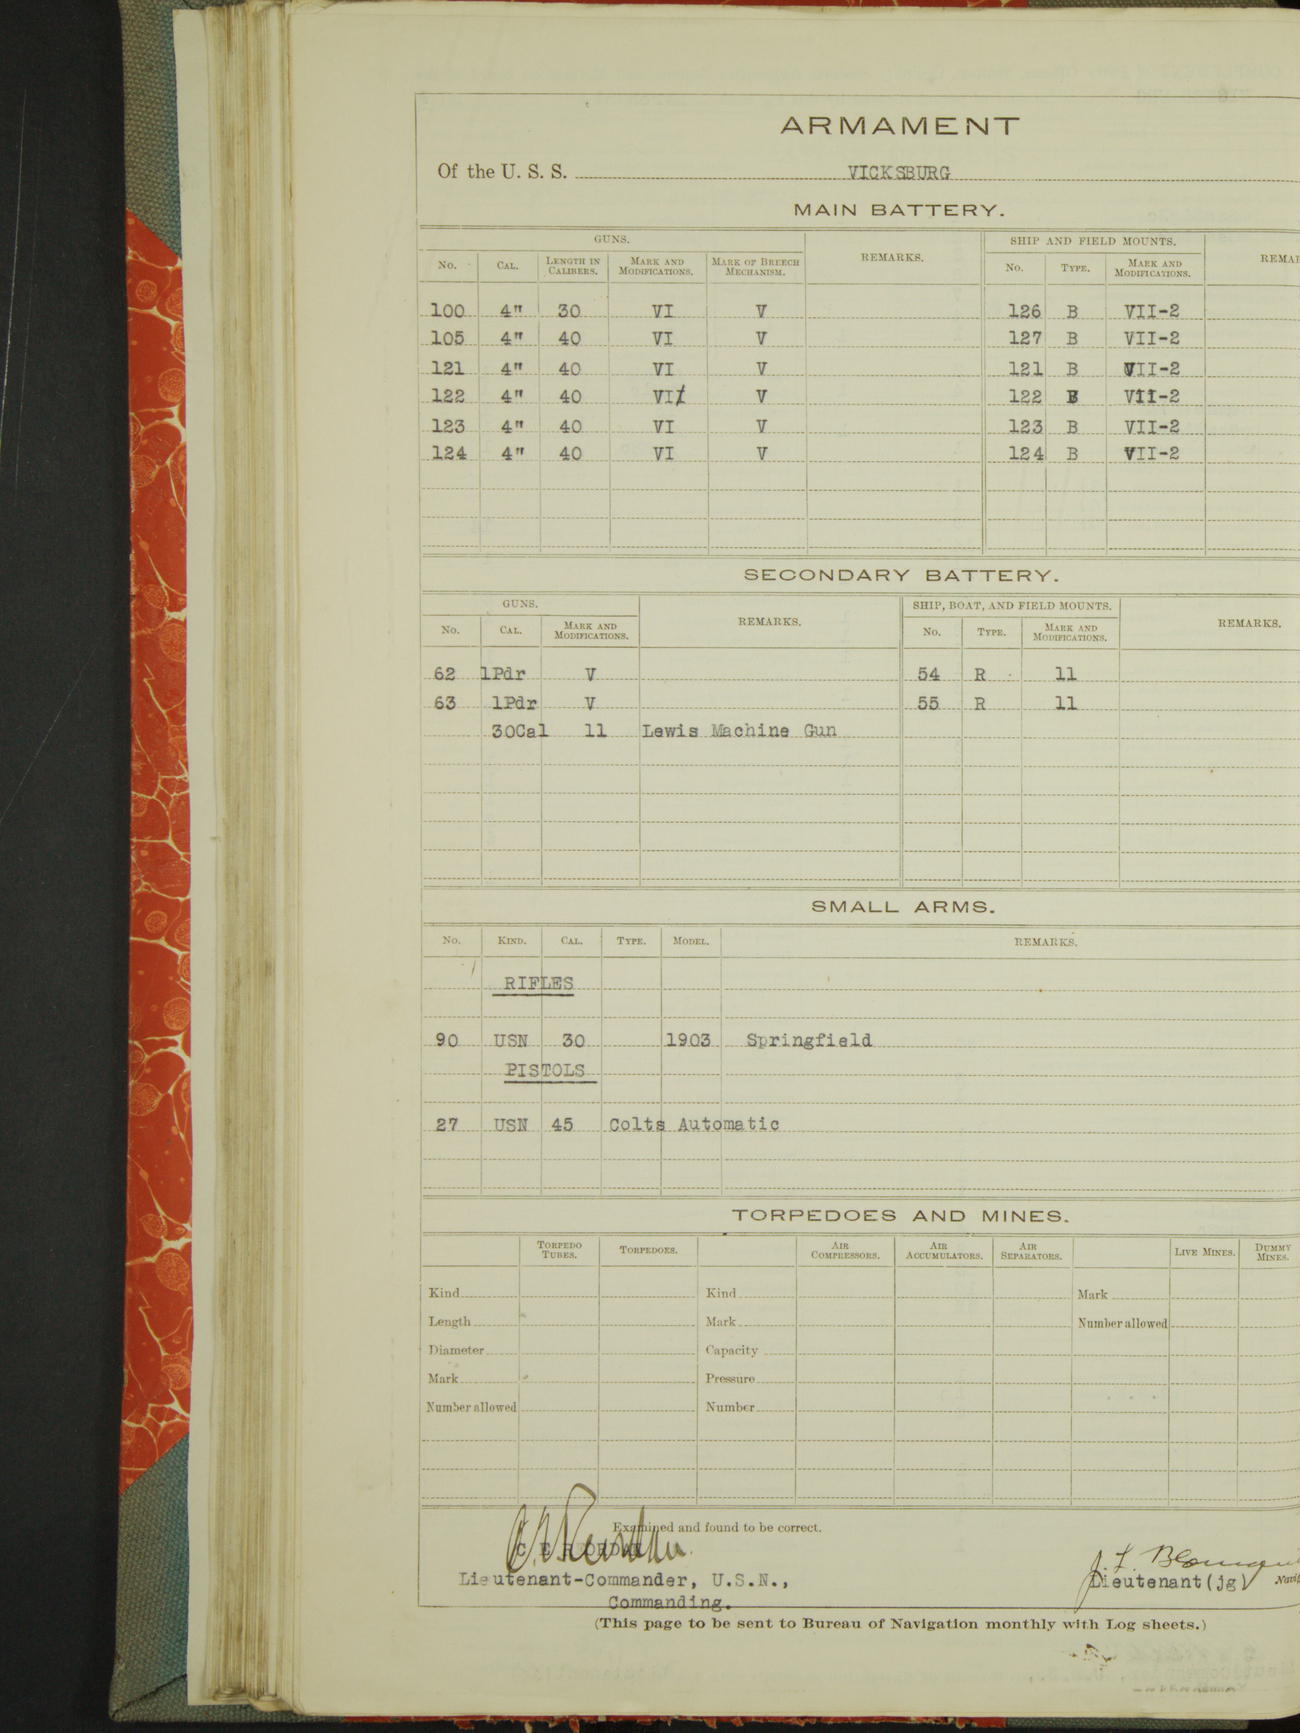 ARMAMENT
Of the U. S. S. VICKSBURG
MAIN BATTERY.
GUNS. REMARKS. SHIP AND FIELD MOUNTS. REMAR
No. CAL. LENGTH IN CALIBERS. MARK AND MODIFICATIONS. MARK OF BREECH MECHANISM. No. TYPE. MARK AND MODIFICATIONS.
100 4" 30 VI V 126 B VII-2
105 4" 40 VI V 127 B VII-2
121 4" 40 VI V 121 B VII-2
122 4" 40 VI V 122 B VII-2
123 4" 40 VI V 123 B VII-2
124 4" 40 VI V 124 B VII-2
SECONDARY BATTERY.
GUNS. REMARKS. SHIP, BOAT, AND FIELD MOUNTS. REMARKS.
No. CAL. MARK AND MODIFICATIONS. No. TYPE. MARK AND MODIFICATIONS.
62 1Pdr V 54 R 11
63 1Pdr V 55 R 11
30Cal 11 Lewis Machine Gun
SMALL ARMS.
No. KIND. CAL. TYPE. MODEL. REMARKS.
RIFLES
90 USN 30 1903 Springfield
PISTOLS
27 USN 45 Colts Automatic
TORPEDOES AND MINES.
TORPEDO TUBES. TORPEDOES. AIR COMPRESSORS. AIR ACCUMULATORS. AIR SEPARATORS. LIVE MINES. DUMMY MINES.
Kind Kind Mark
Length Mark Number allowed
Diameter Capacity
Mark Pressure
Number allowed Number
Examined and found to be correct.
C. E. REORDAN
Lieutenant-Commander, U.S.N., Lieutenant(jg)
Commanding.
(This page to be sent to Bureau of Navigation monthly with Log sheets.)